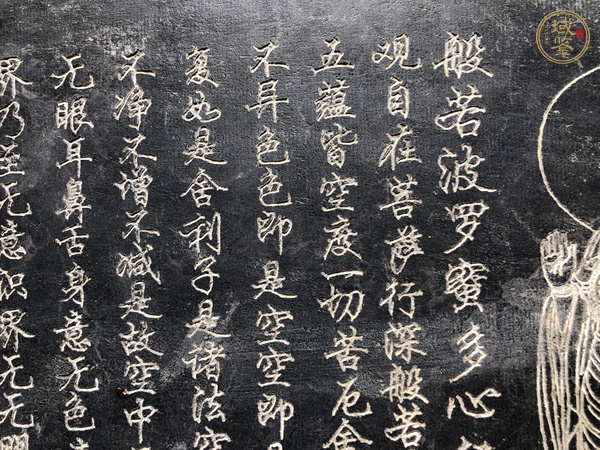 域鉴
般若波罗蜜多心
观自在菩萨行深般若
五蕴皆空度一切苦厄舍
不异色色即是空空即
复如是舍利子是诸法空
不净不增不减是故空中
无眼耳鼻舌身意无色
界乃至无意识界无无明